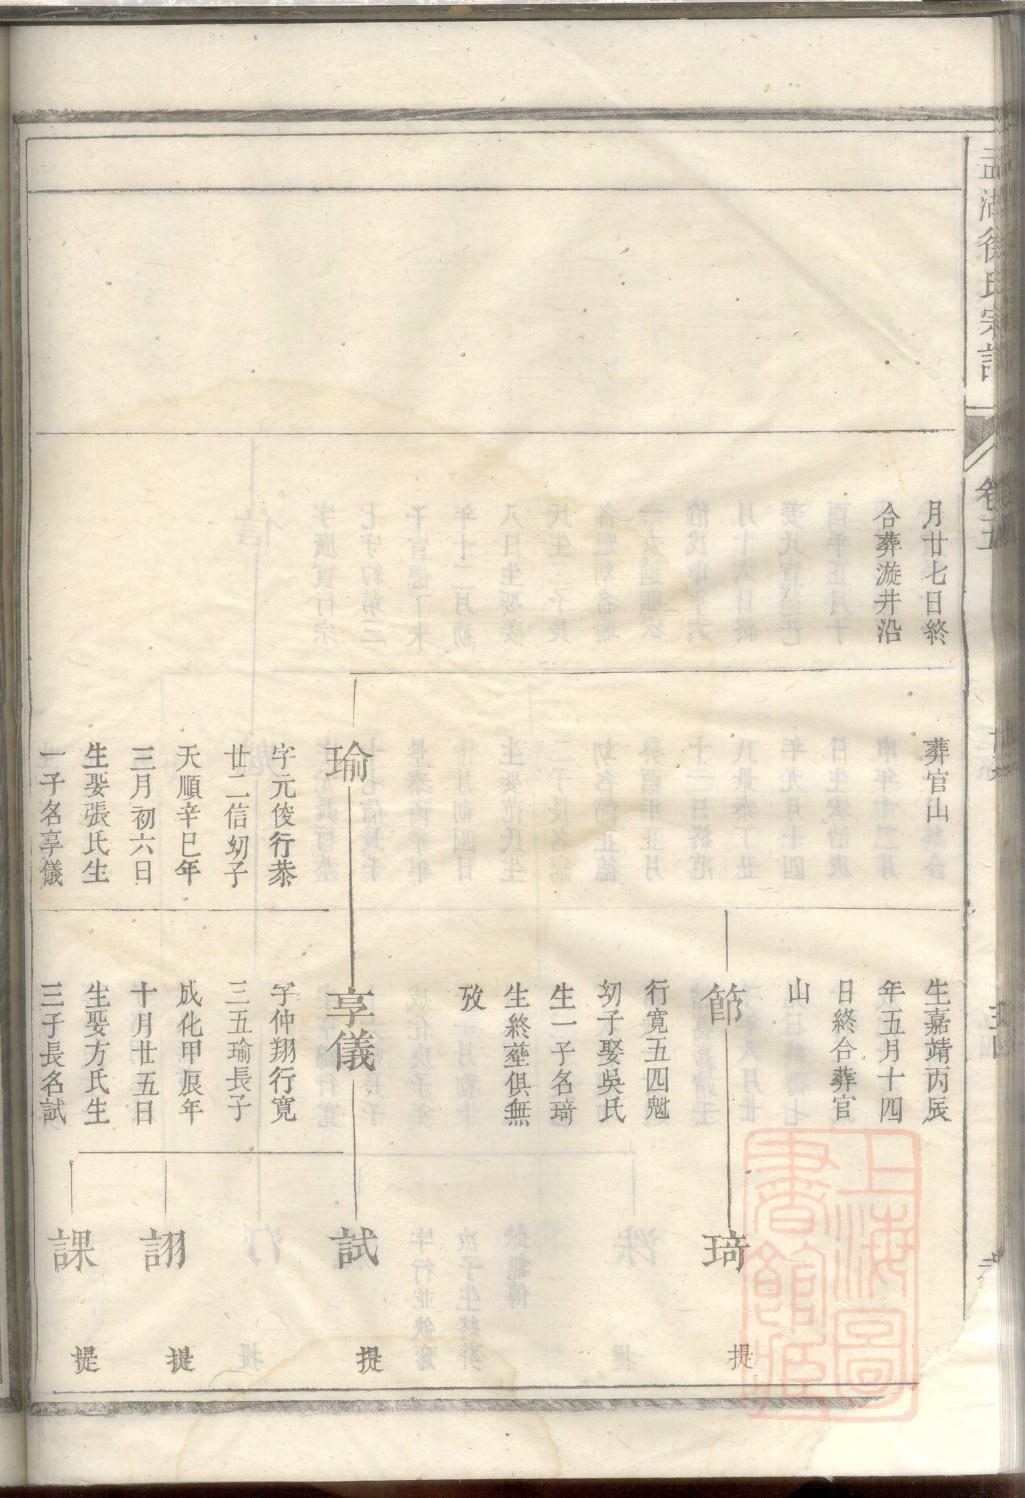 月廿七日終
合葬漩井沿
葬官山
瑜
字元俊行恭
廿二信幼子
天順辛巳年
三月初六日
生娶張氏生
一子名享儀
生嘉靖丙辰
年五月十四
日終合葬官
山
節
行寬五四魁
幼子娶吳氏
生一子名琦
生終塟俱無
攷
享儀
字仲翔行寬
三五瑜長子
成化甲辰年
十月廿五日
生娶方氏生
三子長名試
琦
提
試
提
詡
提
課
提
湖徐氏宗譜
卷五
上海圖書館藏